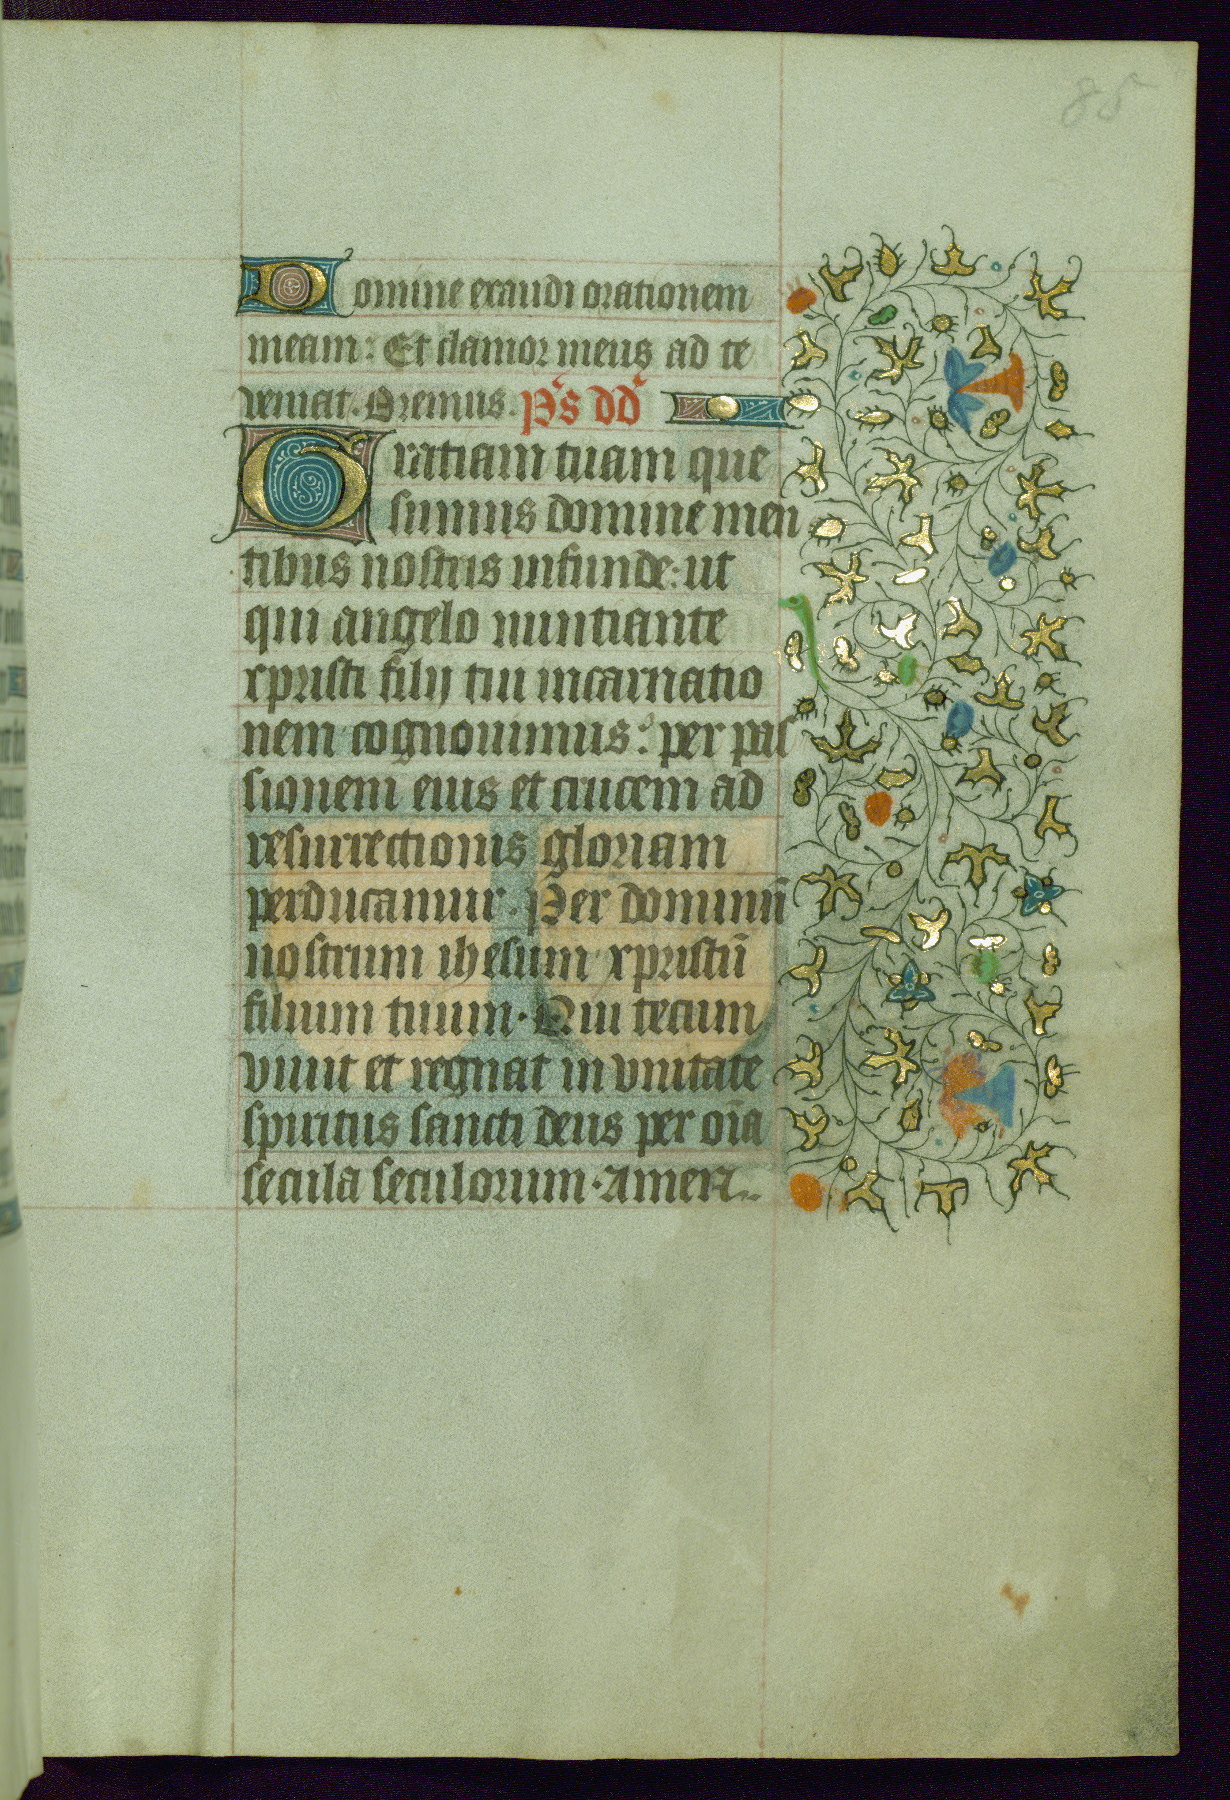 85
Domine exaudi orationem
meam: Et clamor meus ad te
veniat. Oremus. Ps dd
Gratiam tuam que
sumus domine men
tibus nostris infunde: ut
qui angelo nuntiante
xpristi filij tui incarnatio
nem cognouimus: per pas
sionem eius et crucem ad
resurrectionis gloriam
perducamur. Per dominū
nostrum ihesum xpristū
filium tuum. Qui tecum
viuit et regnat in vnitate
spiritus sancti deus per oīa
secula seculorum. Amen.